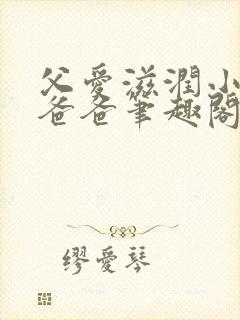 父愛滋潤小
爸爸筆趣閣
繆愛琴